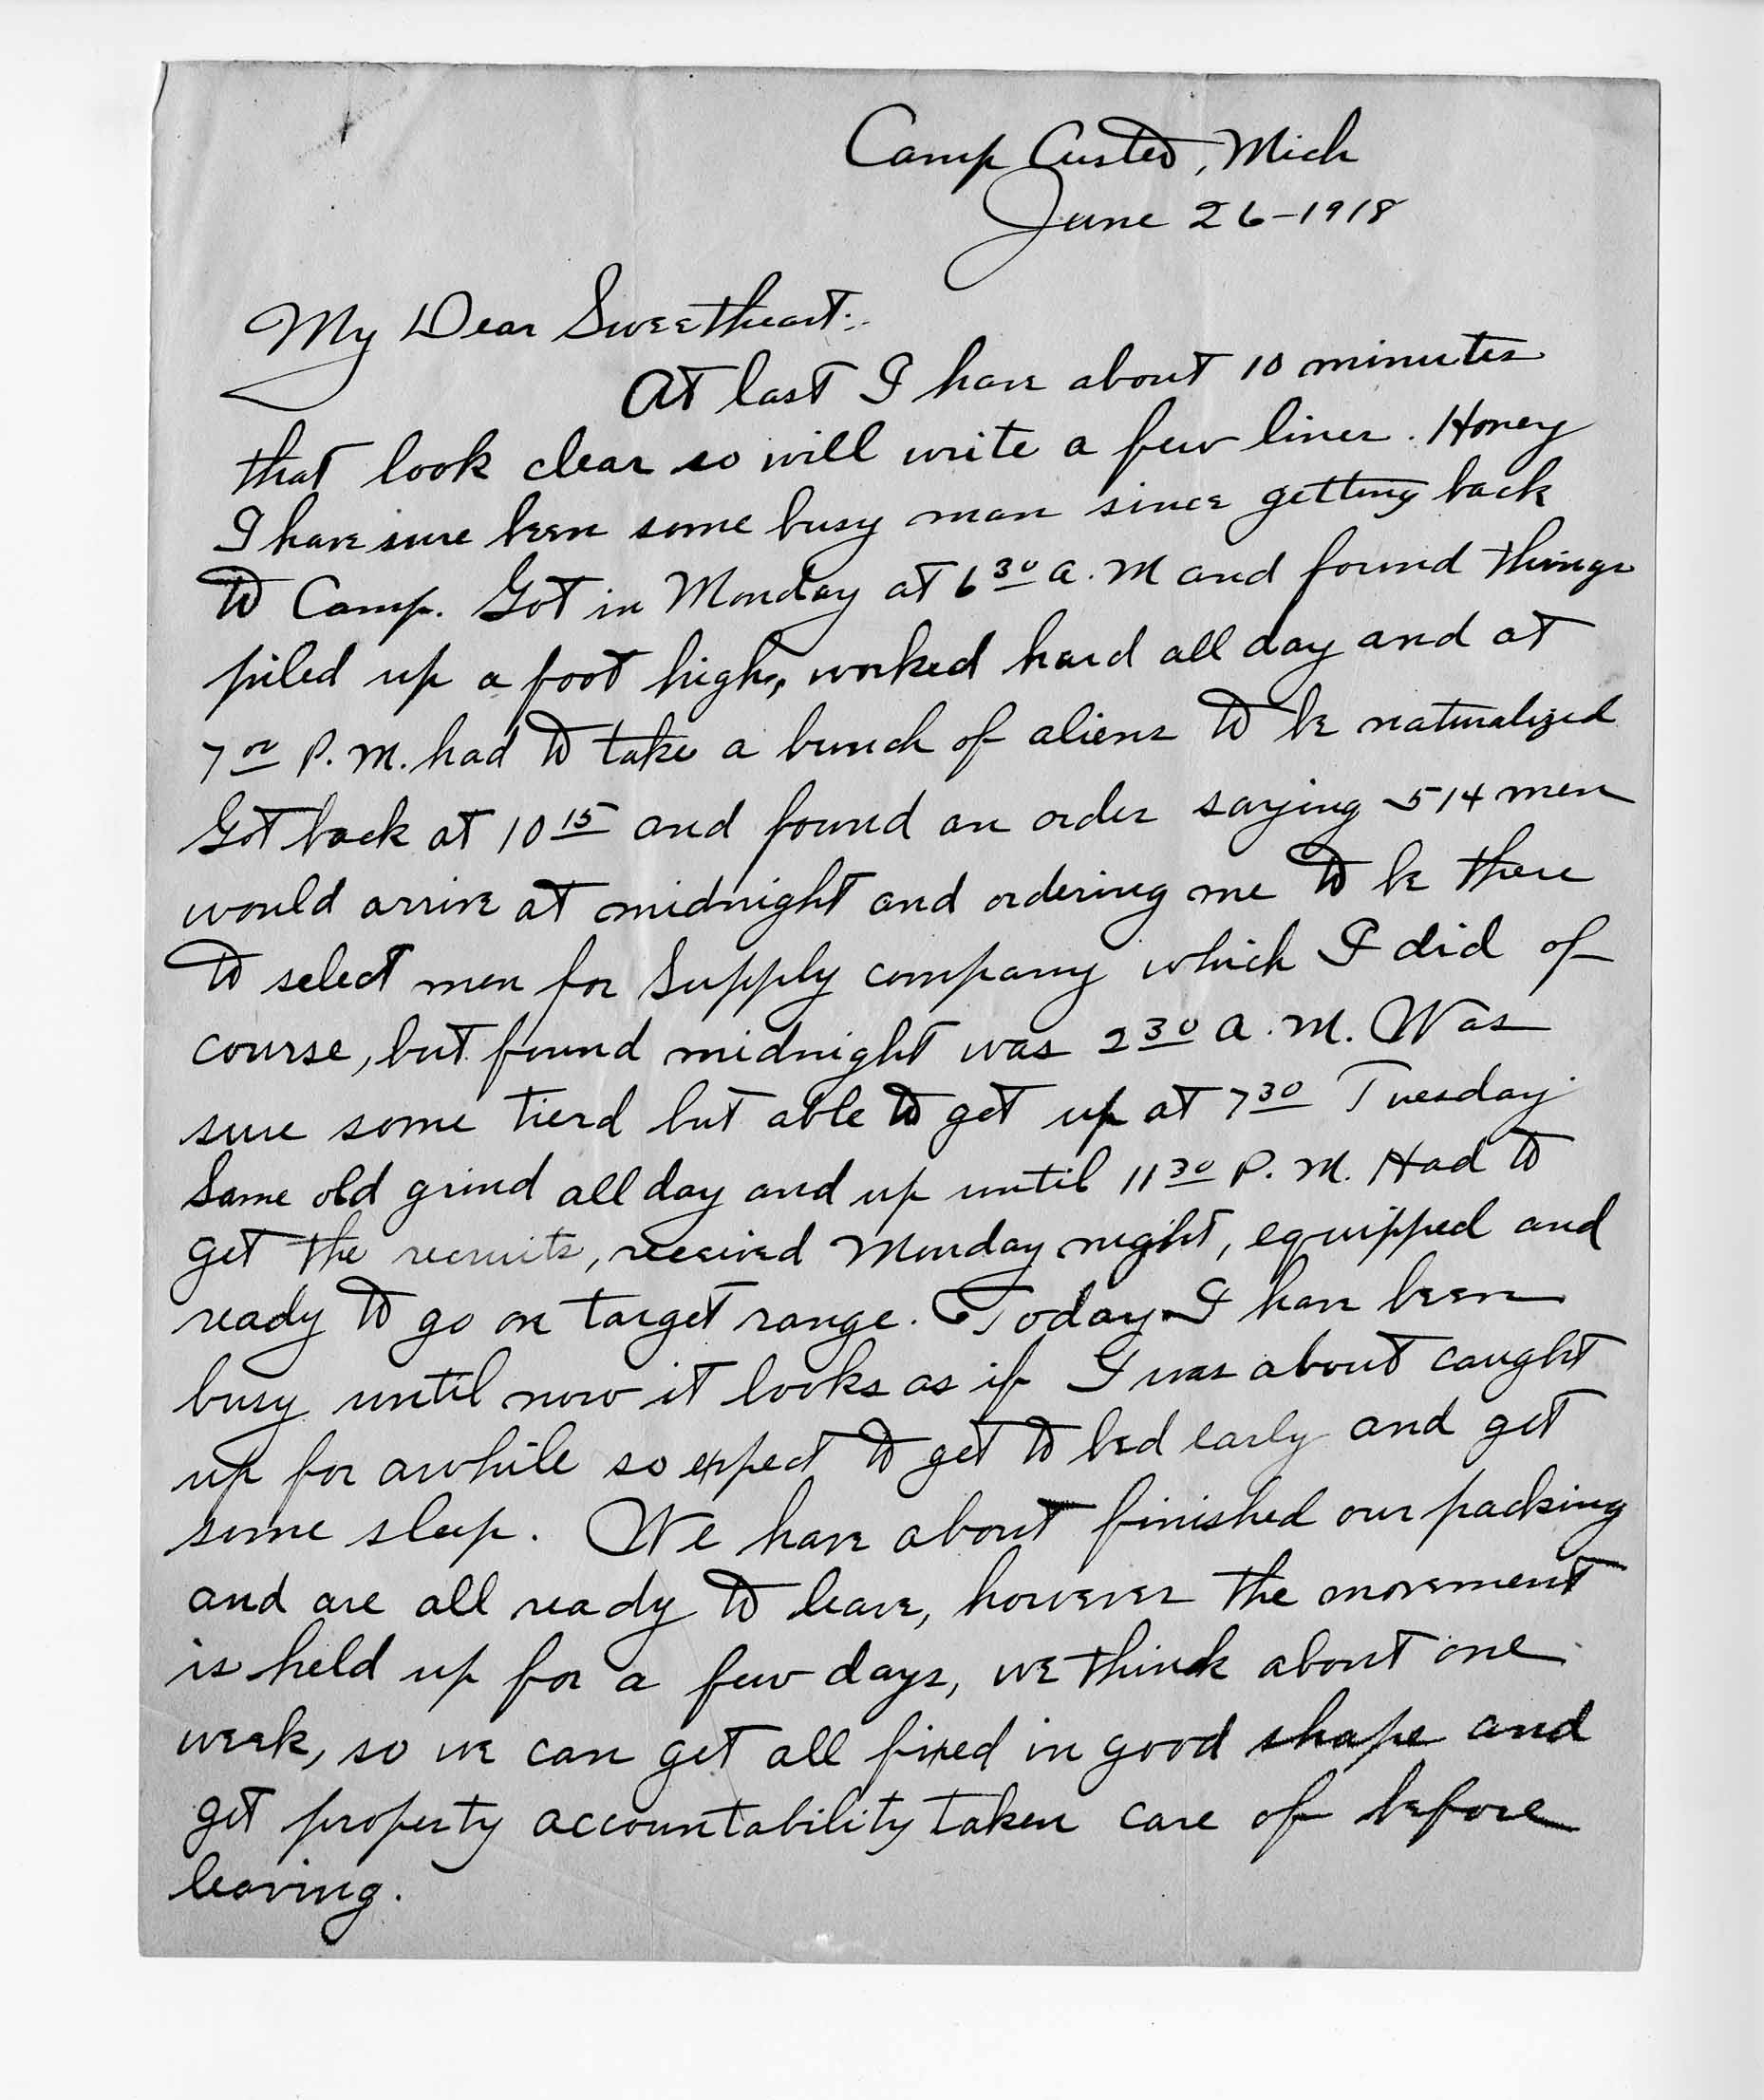 Camp Custer, Mich
June 26-1918
My Dear Sweetheart:.
At last I have about 10 minutes
that look clear so will write a few lines. Honey
I have sure been some busy man since getting back
to Camp. Got in Monday at 6 30 a.m and found things
piled up a foot high, worked hard all day and at
7 00 P.M. had to take a bunch of aliens to be naturalized
Got back at 10 15 and found an order saying 514 men
would arrive at midnight and ordering me to be there
to select men for Supply company which I did of
course, but found midnight was 2 30 a.m. Was
sure some tierd but able to get up at 7 30 Tuesday.
Same old grind all day and up until 11 30 P.M. Had to
get the recruits, received Monday night, equipped and
ready to go on target range. Today I have been
busy until now it looks as if I was about caught
up for awhile so expect to get to bed early and get
some sleep. We have about finished our packing
and are all ready to leave, however the movement
is held up for a few days, we think about one
week, so we can get all fixed in good shape and
get property accountability taken care of before
leaving.